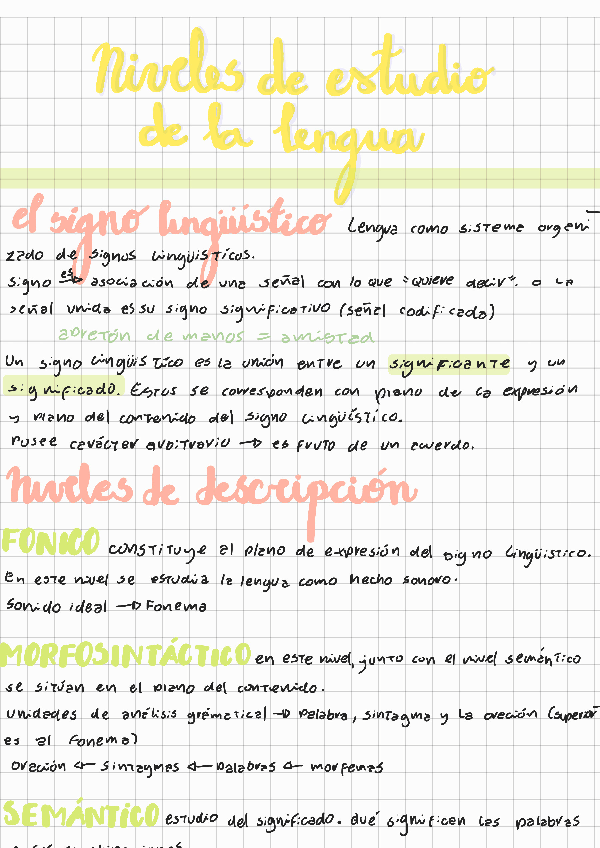 Niveles de estudio
de la lengua
el signo lingüístico Lengua como sistema organi-
zado de signos lingüísticos.
signo es → asociación de una señal con lo que "quiere decir". o la
señal unida es su signo significativo (señal codificada)
apretón de manos = amistad
Un signo lingüístico es la unión entre un significante y un
significado. Estos se corresponden con plano de la expresión
y plano del contenido del signo lingüístico.
Posee carácter arbitrario → es fruto de un acuerdo.
Niveles de descripción
FÓNICO constituye el plano de expresión del signo lingüístico.
En este nivel se estudia la lengua como hecho sonoro.
Sonido ideal → Fonema
MORFOSINTÁCTICO en este nivel, junto con el nivel semántico
se sitúan en el plano del contenido.
unidades de análisis gramatical → palabra, sintagma y la oración (superior
es al fonema)
oración ← sintagmas ← palabras ← morfemas
SEMÁNTICO estudio del significado. qué significan las palabras